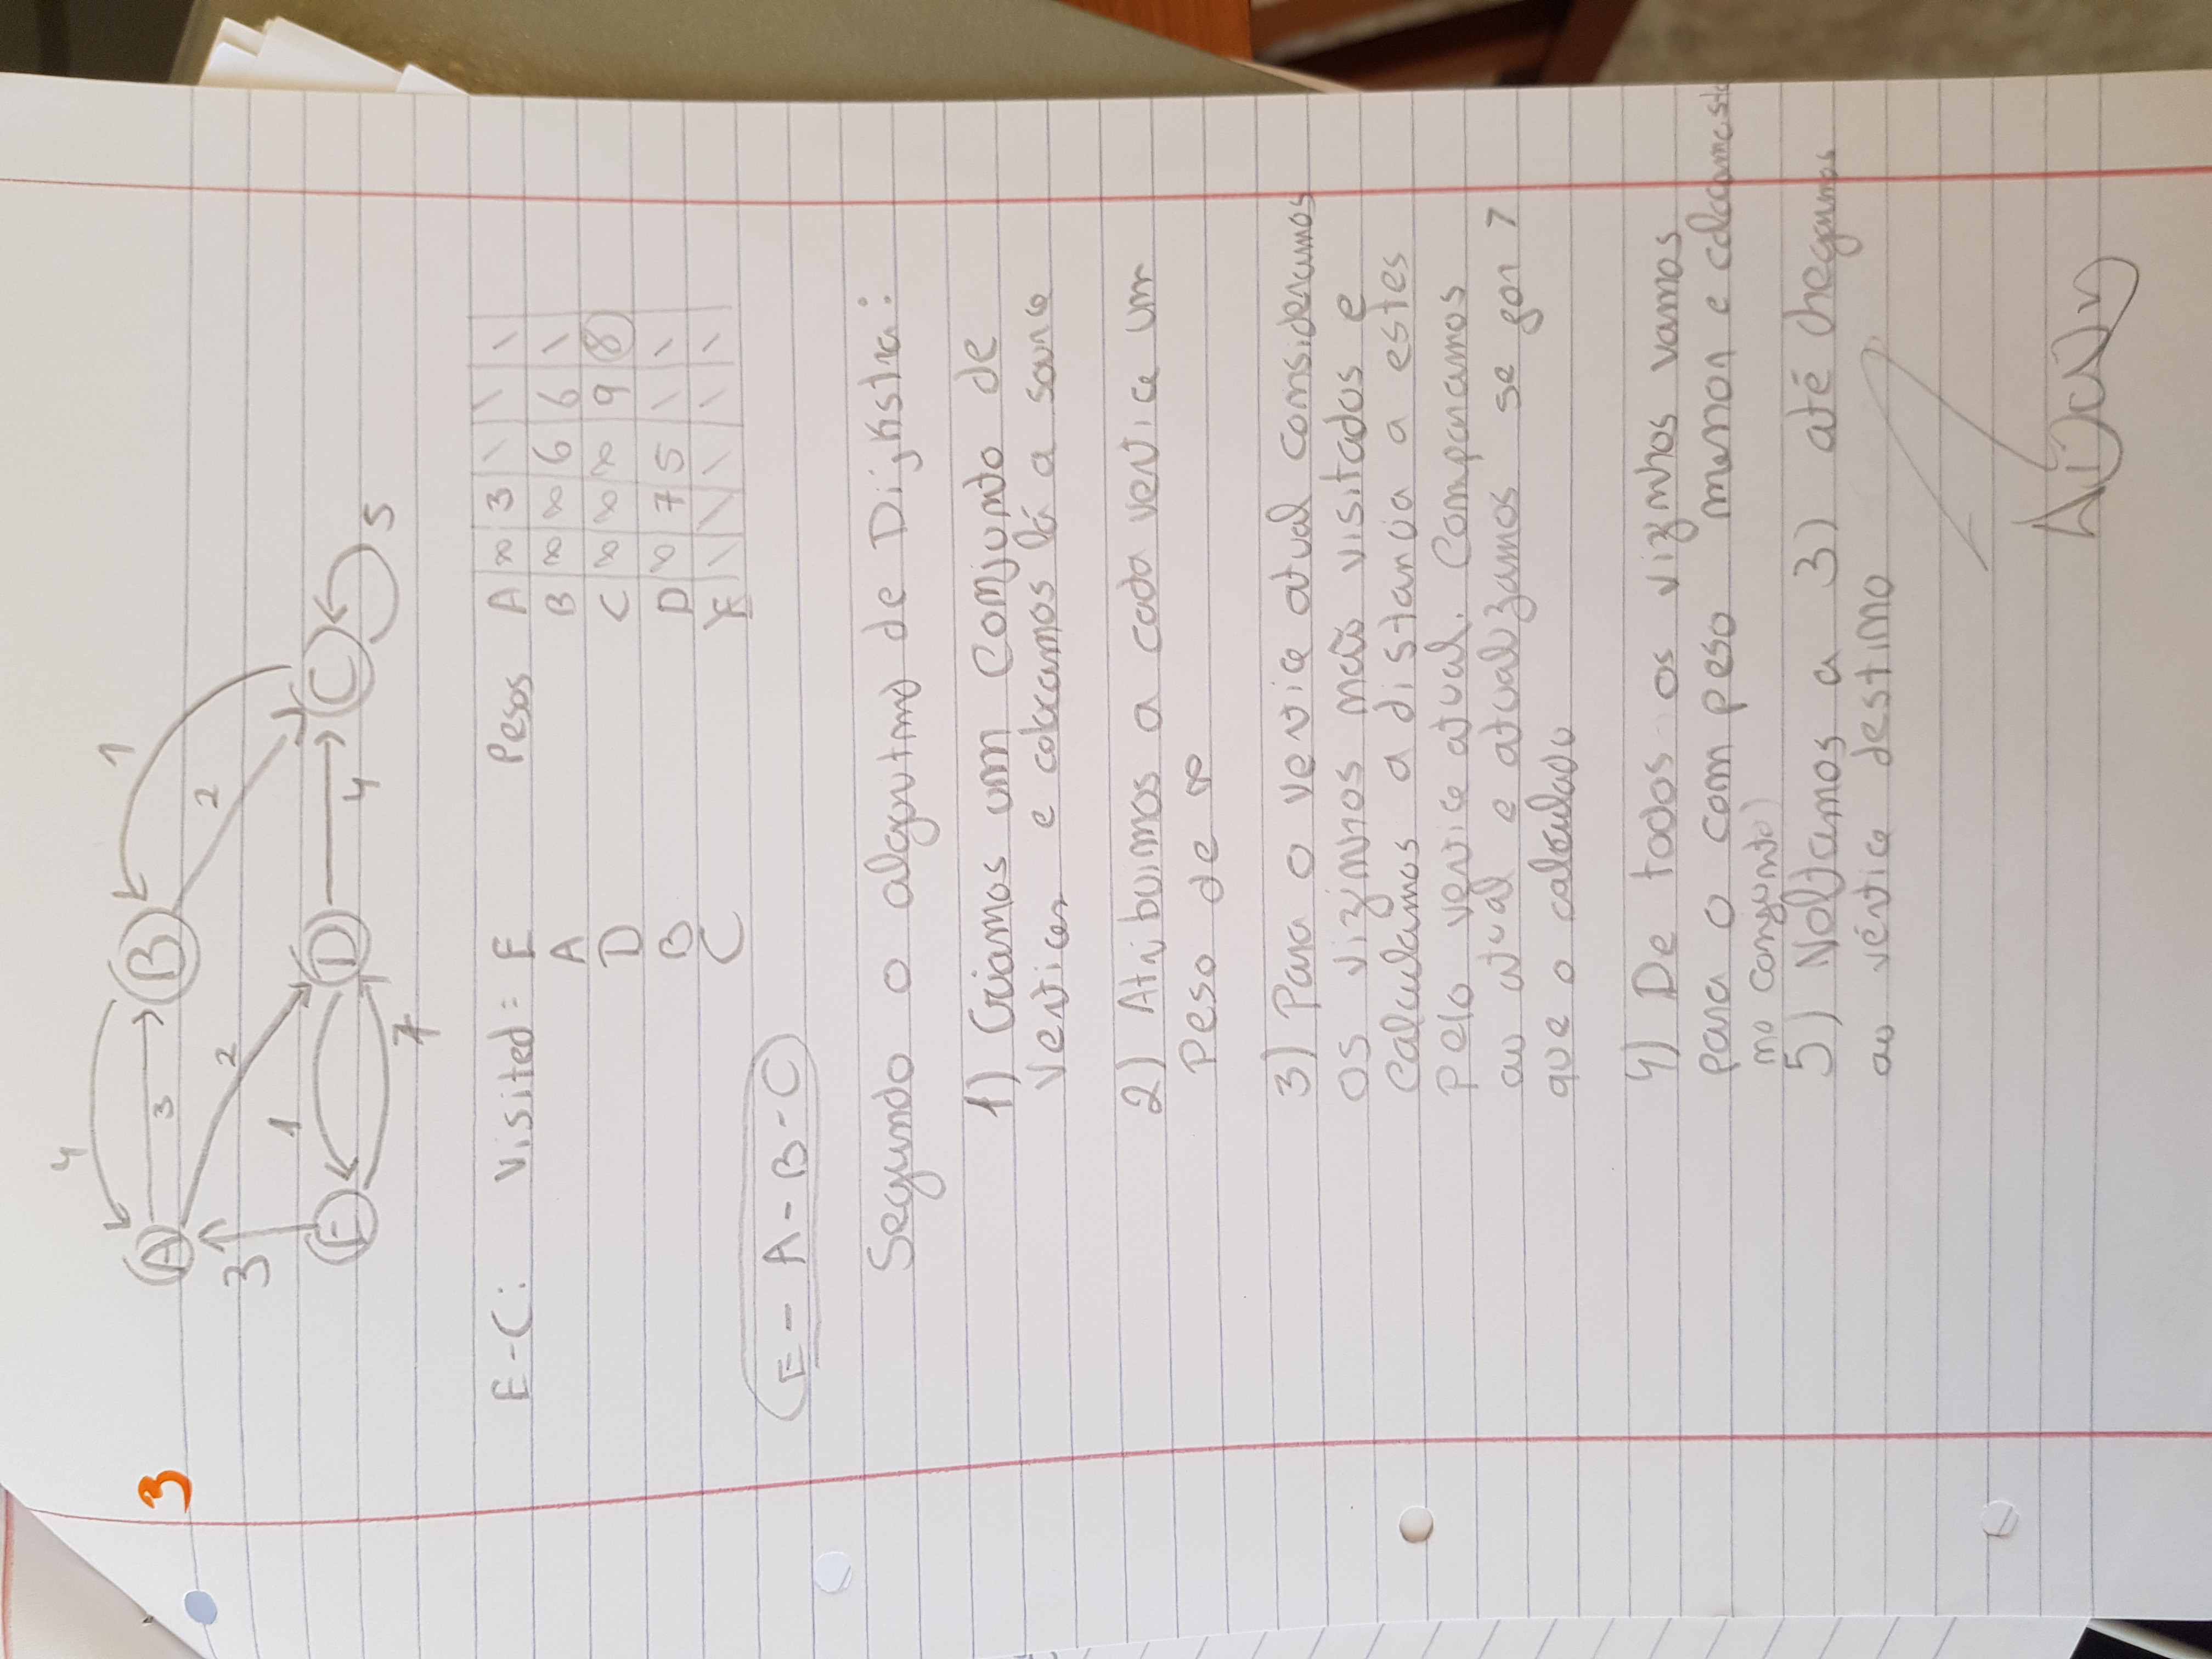 3
4
1
A
3
B
2
2
3
1
E
D
4
C
5
7
E-C: Visited: E Pesos A ∞ 3 \ \ \
A B ∞ ∞ 6 6 \
D C ∞ ∞ ∞ 9 8
B D ∞ 7 5 \ \
C E \ \ \ \ \
E - A - B - C
Segundo o algoritmo de Dijkstra:
1) Criamos um conjunto de
vertices e colocamos lá a source
2) Atribuimos a cada vertice um
peso de ∞
3) Para o vertice atual consideramos
os vizinhos não visitados e
calculamos a distancia a estes
pelo vertice atual. Comparamos
ao atual e atualizamos se for >
que o calculado
4) De todos os vizinhos vamos
para o com peso menor e
no conjunto)
5) Voltamos a 3) até chegarmos
ao vértice destino